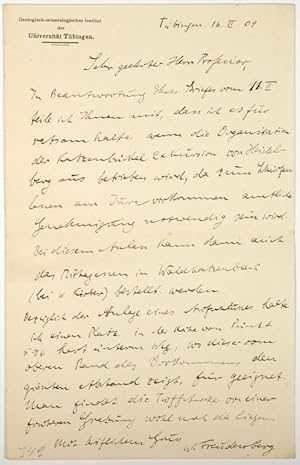 Geologisch-mineralogisches Institut
der
Universität Tübingen.
Tübingen. 16. II. 09
Sehr geehrter Herr Professor,
In Beantwortung Ihres Briefes vom 11. II
teile ich Ihnen mit, dass ich es für
ratsam halte wenn die Organisation
der Katzenbuckel Exkursion von Heidel-
berg aus betrieben wird, da zum
am Jura vorkommen amtliche
Genehmigung notwendig sein wird.
Bei diesem Anlass kann dann auch
das Mittagessen in Waldkatzenbach
(bei ) bestellt werden.
Bezüglich der Anlage eines halte
ich einen Platz in der Nähe von Punkt
hart unterm Weg, wo dieser vom
oberen Rand des Vorkommens den
größten Abstand zeigt, für geeignet.
Man findet die von einer
früheren Grabung wohl noch da liegen
Mit höflichem Gruss
W. Freudenberg